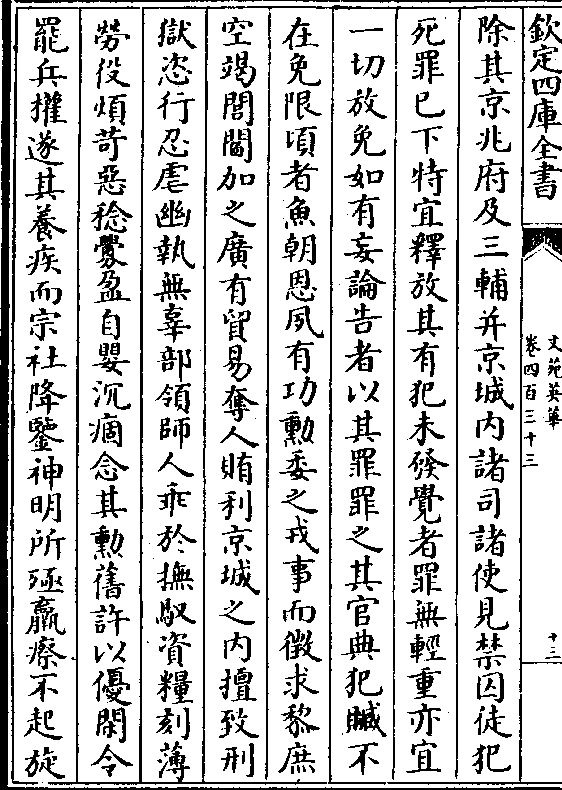 欽定四庫全書
文苑英華
卷四百三十三
十三
除其京兆府及三輔并京城内諸司諸使見禁囚徒犯
死罪已下特宜釋放其有犯未發覺者罪無輕重亦宜
一切放免如有妄論告者以其罪罪之其官典犯贓不
在免限頃者魚朝恩夙有功勲委之戎事而徵求黎庶
空竭閭閻加之廣有貿易奪人賄利京城之内擅致刑
獄恣行忍虐幽執無辜部領師人乖於撫馭資糧刻薄
勞役煩苛惡稔釁盈自嬰沉痼念其勲舊許以優閑令
罷兵權遂其養疾而宗社降鑒神明所殛羸瘵不起旋